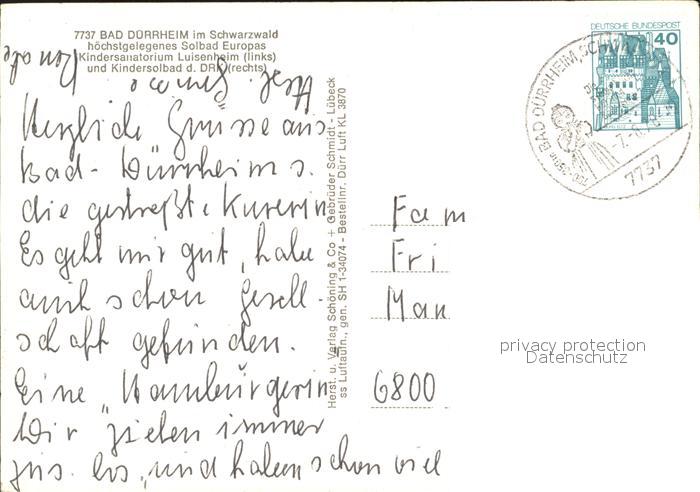 7737 BAD DÜRRHEIM im Schwarzwald
höchstgelegenes Solbad Europas
Kindersanatorium Luisenheim (links)
und Kindersolbad d. DRK (rechts)
Herzliche Grüsse aus
Bad-Dürrheim s.
die gestreßte Kurerin
Es geht mir gut, habe
auch schon Gesell-
schaft gefunden.
Eine „Hamburgerin"
Wir ziehen immer
zus. los, und haben schon viel
Herzl. Grüsse
Renate
Herst. u. Verlag Schöning & Co + Gebrüder Schmidt - Lübeck
ss Luftaufn., gen. SH 1-34074 - Bestellnr. Dürr Luft KL 3870
DEUTSCHE BUNDESPOST
40
BAD DÜRRHEIM, SCHW
7737
Fam
Fri
Man
6800
privacy protection
Datenschutz